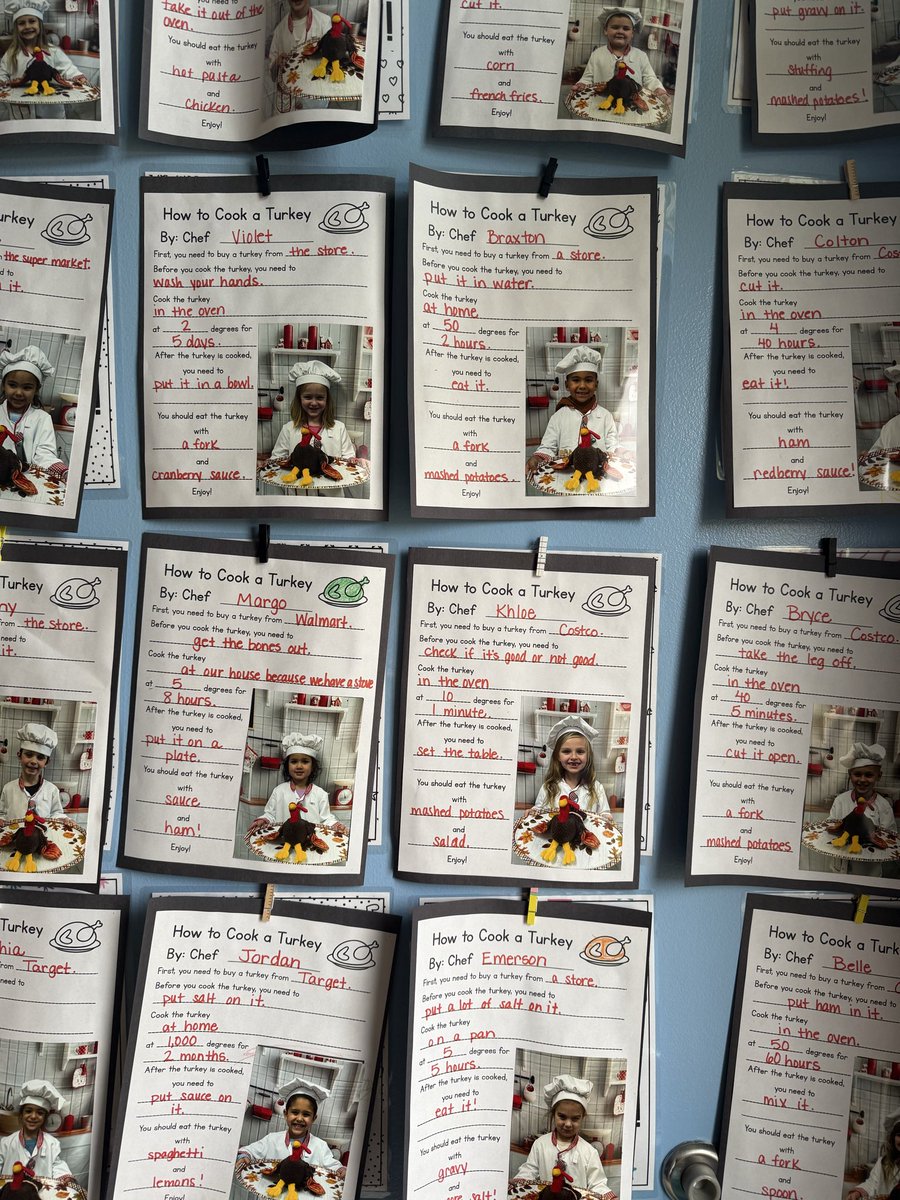 take it out of the
oven.
You should eat the turkey
with
hot pasta
and
chicken.
Enjoy!
cut it.
with
corn
and
french fries.
Enjoy!
put gravy on it.
You should eat the turkey
with
stuffing
and
mashed potatoes!
Enjoy!
Turkey
the super market.
it.
How to Cook a Turkey
By: Chef Violet
First, you need to buy a turkey from the store.
Before you cook the turkey, you need to
wash your hands.
Cook the turkey
in the oven
at 2 degrees for
5 days.
After the turkey is cooked,
you need to
put it in a bowl.
You should eat the turkey
with
a fork
and
cranberry sauce.
Enjoy!
How to Cook a Turkey
By: Chef Braxton
First, you need to buy a turkey from a store.
Before you cook the turkey, you need to
put it in water.
Cook the turkey
at home
at 50 degrees for
2 hours.
After the turkey is cooked,
you need to
eat it.
You should eat the turkey
with
a fork
and
mashed potatoes.
Enjoy!
How to Cook a Turkey
By: Chef Colton
First, you need to buy a turkey from
Before you cook the turkey, you need to
cut it.
Cook the turkey
in the oven
at 4 degrees for
40 hours.
After the turkey is cooked,
you need to
eat it!
You should eat the turkey
with
ham
and
redberry sauce!
Enjoy!
Turkey
the store.
it.
How to Cook a Turkey
By: Chef Margo
First, you need to buy a turkey from Walmart.
Before you cook the turkey, you need to
get the bones out.
Cook the turkey
at our house because we have a stove
at 5 degrees for
8 hours.
After the turkey is cooked,
you need to
put it on a
plate.
You should eat the turkey
with
sauce
and
ham!
Enjoy!
How to Cook a Turkey
By: Chef Khloe
First, you need to buy a turkey from Costco.
Before you cook the turkey, you need to
check if it's good or not good.
Cook the turkey
in the oven
at 10 degrees for
1 minute.
After the turkey is cooked,
you need to
set the table.
You should eat the turkey
with
mashed potatoes
and
salad.
Enjoy!
How to Cook a Turkey
By: Chef Bryce
First, you need to buy a turkey from Costco.
Before you cook the turkey, you need to
take the leg off.
Cook the turkey
in the oven
at 40 degrees for
5 minutes.
After the turkey is cooked,
you need to
cut it open.
You should eat the turkey
with
a fork
and
mashed potatoes
Enjoy!
a Turkey
from Target.
need to
How to Cook a Turkey
By: Chef Jordan
First, you need to buy a turkey from Target.
Before you cook the turkey, you need to
put salt on it.
Cook the turkey
at home
at 1,000 degrees for
2 months.
After the turkey is cooked,
you need to
put sauce on
it.
You should eat the turkey
with
spaghetti
and
lemons!
Enjoy!
How to Cook a Turkey
By: Chef Emerson
First, you need to buy a turkey from a store.
Before you cook the turkey, you need to
put a lot of salt on it.
Cook the turkey
on a pan
at 5 degrees for
5 hours.
After the turkey is cooked,
you need to
eat it!
You should eat the turkey
with
gravy
and
salt!
How to Cook a
By: Chef Belle
First, you need to buy a turkey from
Before you cook the turkey, you need to
put ham in it.
Cook the turkey
in the oven.
at 50 degrees for
60 hours
After the turkey is cooked,
you need to
mix it.
You should eat the turkey
with
a fork
and
spoon.